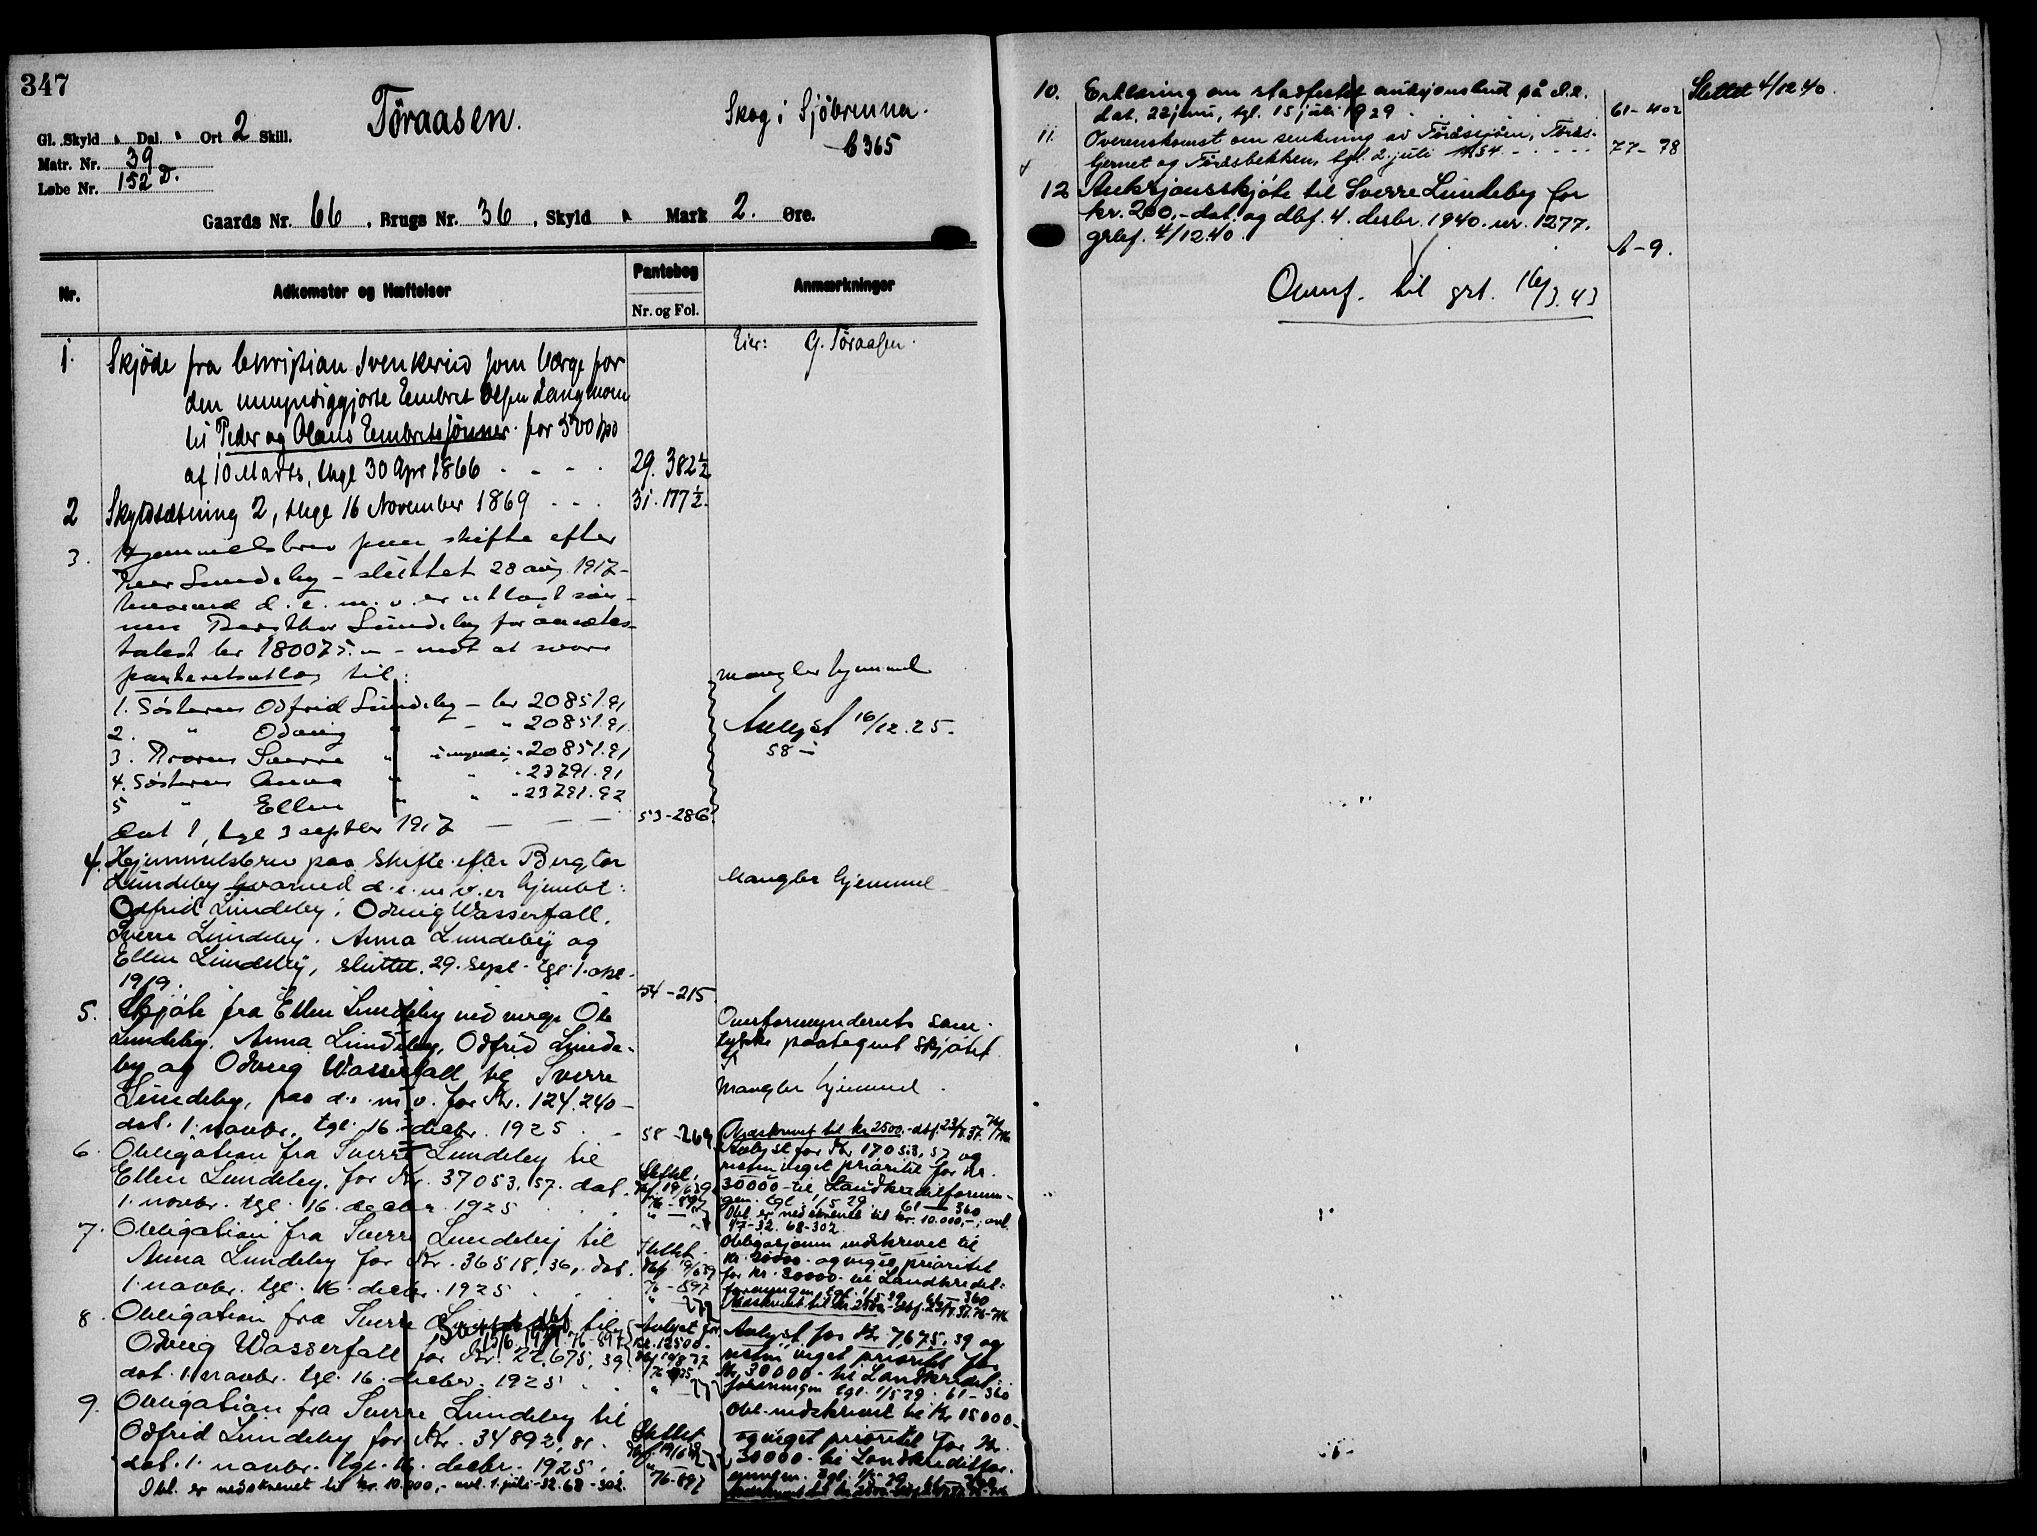 347
Töraasen.
Skog i Sjöbrenna.
b 365
Gl. Skyld " Dal. " Ort 2 Skill.
Matr. Nr. 39
Løbe Nr. 152 D.
Gaards Nr. 66, Brugs Nr. 36, Skyld " Mark 2. Øre.
Nr. Adkomster og Hæftelser Pantebog Nr. og Fol. Anmærkninger
Eier: G. Töraasen.
1. Skjöde fra Christian Svenkerud som Værge for
den umyndiggjorte Eembret Olsen Langmoen
til Peder og Olaus Eembretssönner for 500 Spd
af 10 Marts, thgl 30 Apr 1866 - - - 29. 382 1/2
2 Skyldsætning 2, thgl 16 November 1869 - - - 31. 177 1/2.
3. Hjemmelsbrev paa skifte efter
Peer Lundeby - sluttet 28 aug. 1917 -
hvorved d. e. m. v. er utlagt søn-
nen Bergthor Lundeby for aasætes-
takst kr 180075.- - mot at svare
panteretsutlæg til:
1. Søsteren Odfrid Lundeby - kr 20851.91
2. " Odveig " - " 20851.91
3. Broren Sverre " umyndig - 20851.91
4. Søsteren Anna " " - 23791.91
5 " Ellen " " - 23791.92
Dat 1, tgl 3 septbr 1917 - - - 53-286.
mangler hjemmel
Avlyst 16/12.25.
58 -
4. Hjemmelsbrev paa skifte efter Bergtor
Lundeby hvorved d. e. m. v. er hjemlet:
Odfrid Lundeby, Odveig Wasserfall,
Sverre Lundeby, Anna Lundeby og
Ellen Lundeby, sluttet 29. sept. tgl. 1. okt.
1919. 54-215
Mangler hjemmel
5. Skjøte fra Ellen Lundeby ved verge Ole
Lundeby, Anna Lundeby, Odfrid Lunde-
by og Odveig Wasserfall til Sverre
Lundeby, paa d. e. m. v. for Kr. 124.240 -
dat. 1. novbr. tgl. 16. decbr. 1925. - 58-269
Overformynderiets sam-
tykke paategnet skjøtet.
Mangler hjemmel.
6. Obligation fra Sverre Lundeby til
Ellen Lundeby, for Kr. 37053,57. dat.
1. novbr. tgl. 16. decbr. 1925
Slettet.
76-897
Nedskrevet til kr 2500.- dbf. 23/8.37.
Avlyst for Kr 17053,57 og
resten veget prioritet for kr.
30000 - til Landkreditforenin-
gen. tgl. 1/5 29 61-360
Obl. er nedskrevet til kr. 10.000,-, avl.
68-302
7. Obligation fra Sverre Lundeby til
Anna Lundeby for Kr. 36518,36, dat.
1. novbr. tgl. 16. decbr. 1925
Slettet.
76-897
Obligasjonen nedskrevet til
Kr. 20000 - og veget prioritet
for kr. 30000 - til Landkredit-
foreningen tgl. 1/5 29 61-360
8. Obligation fra Sverre Lundeby til
Odveig Wasserfall for Kr. 22.675,39
dat. 1. novbr. tgl. 16. decbr. 1925
Avlyst for
kr. 12500.-
Avlyst for Kr 7675,39 og
resten veget prioritet for
Kr. 30000 - til Landkredit-
foreningen tgl. 1/5 29. 61-360
9. Obligation fra Sverre Lundeby til
Odfrid Lundeby for Kr. 34892,81.
dat. 1. novbr. tgl. 16. decbr. 1925.
Obl. er nedskrevet til kr. 10.000,- avl. 1. juli - 32. 68-302.
Slettet
76-897
Obl. nedskrevet til Kr 15000 -
og veget prioritet for Kr.
30000 - til Landkreditfor-
eningen. tgl. 1/5 29
10. Erklæring om stadfestet auksjonsbud på d.e.
dat. 22 juni, tgl. 15 juli 1929 61-402
Slettet 4/12 40.
11. Overenskomst om senkning av Töråssjöen, Törås-
tjernet og Töråsbekken, tgl. 2. juli 1934 - - - - 77-78
12 Auksjonsskjøte til Sverre Lundeby for
kr. 200,- dat. og dbf. 4. desbr. 1940. nr. 1277.
grbf. 4/12 40. A-9.
Overf. til grt. 16/3.43